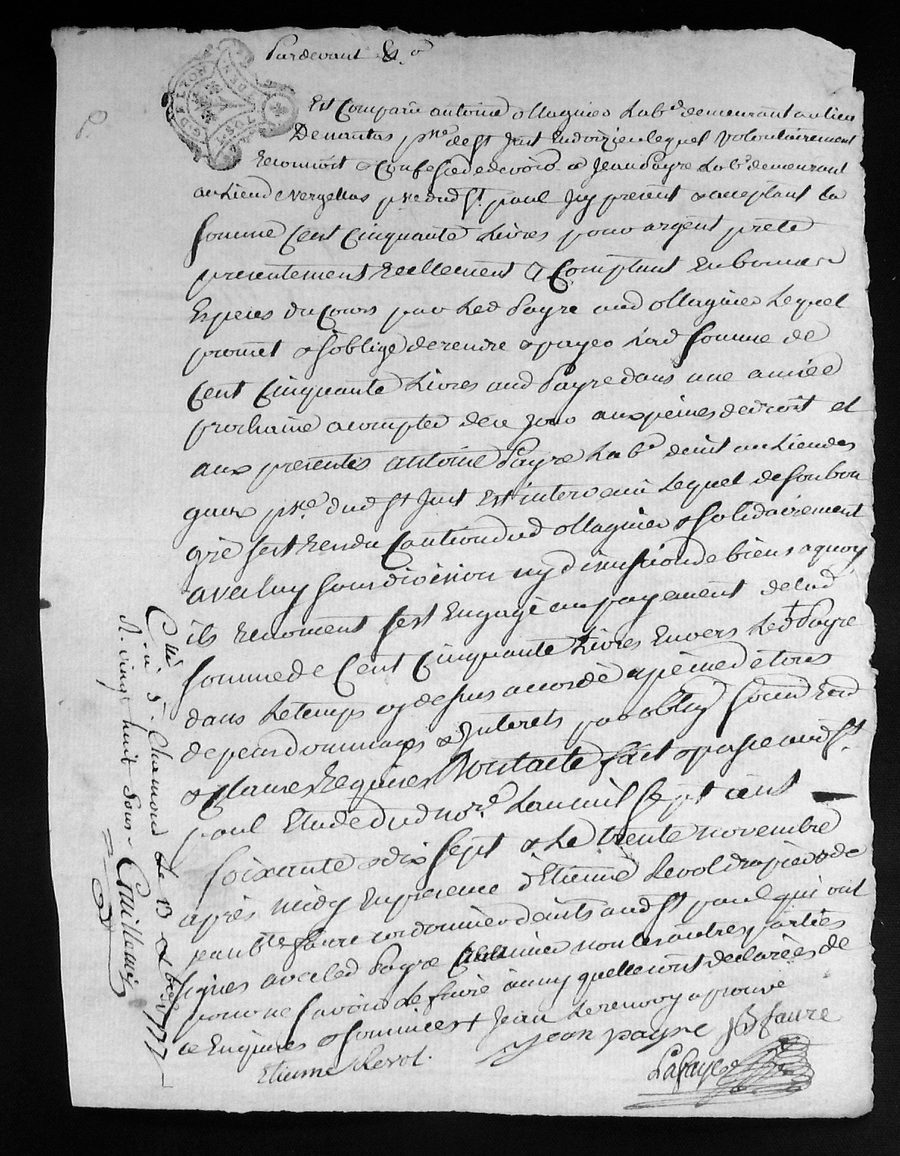 Pardevant &.a
GDE LYON
Est Comparu antoine ollagnier Labr. demeurant au lieu
De nantas psse. de st Just Endoizieu lequel volontairement
Reconnoit & Confesse devoir a Jean Payre Labr. demeurant
au Lieu de vergellas psse dud st. paul Icy present & acceptant La
somme Cent Cinquante Livres pour argent prêté
presentement Reellement & Comptant En bonnes
Especes du Cours par Led Payre aud ollagnier Lequel
promet & s'oblige de rendre & payer Lad somme de
Cent Cinquante Livres aud Payre dans une année
prochaine a compter de ce Jour aux peines de droit et
aux presentes antoine Payre Labr. demt au Lieu des
gaux psse. dud st Just Est intervenu Lequel de son bon
gré s'est Rendu Caution dud ollagnier & solidairement
avec luy sans division ny discussion de biens a quoy
ils renoncent s'est Engagé au payement de lad
somme de Cent Cinquante Livres Envers Led. Payre
dans Le temps cy dessus accordé a peine de tous
depens dommages & Interets par oblig
& Clauses Requises Dont acte fait & passé aud st.
paul Etude dud nore. L'an mil sept cent
soixante & dix sept & Le trente novembre
après midy En presence d'Etienne Revol drapier & de
jean bte. faure cordonnier demts aud st paul qui ont
signés avec led Payre non les autres parties
pour ne savoir Le faire ainsy qu'elles ont declarées de
ce Enquises & sommées + Jean Le renvoy aprouvé
Jean payre JB faure
Etienne Revol.
Lafayе
C.lé
a St. Chamond Le 13 Xbre 1777
R. vingt huit sous. Guillemin